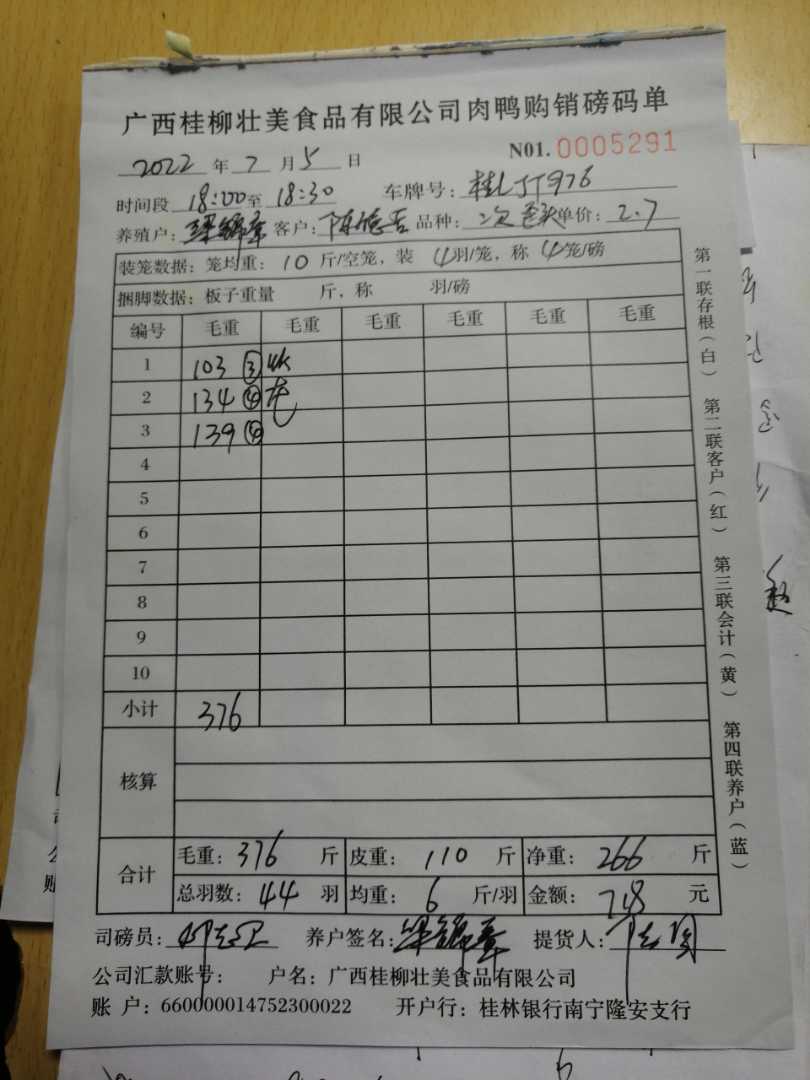 广西桂柳壮美食品有限公司肉鸭购销磅码单
2022 年 7 月 5 日 N01. 0005291
时间段 18:00 至 18:30 车牌号: 桂LJT976
养殖户: 客户: 品种: 次 单价: 2.7
装笼数据: 笼均重: 10 斤/空笼, 装 4 羽/笼, 称 4 笼/磅
捆脚数据: 板子重量 斤, 称 羽/磅
编号 毛重 毛重 毛重 毛重 毛重 毛重
1 103 ③
2 134 ④
3 139 ④
4
5
6
7
8
9
10
小计 376
核算
合计 毛重: 376 斤 皮重: 110 斤 净重: 266 斤
总羽数: 44 羽 均重: 6 斤/羽 金额: 718 元
司磅员: 养户签名: 提货人:
公司汇款账号: 户名: 广西桂柳壮美食品有限公司
账 户: 660000014752300022 开户行: 桂林银行南宁隆安支行
第一联存根(白) 第二联客户(红) 第三联会计(黄) 第四联养户(蓝)